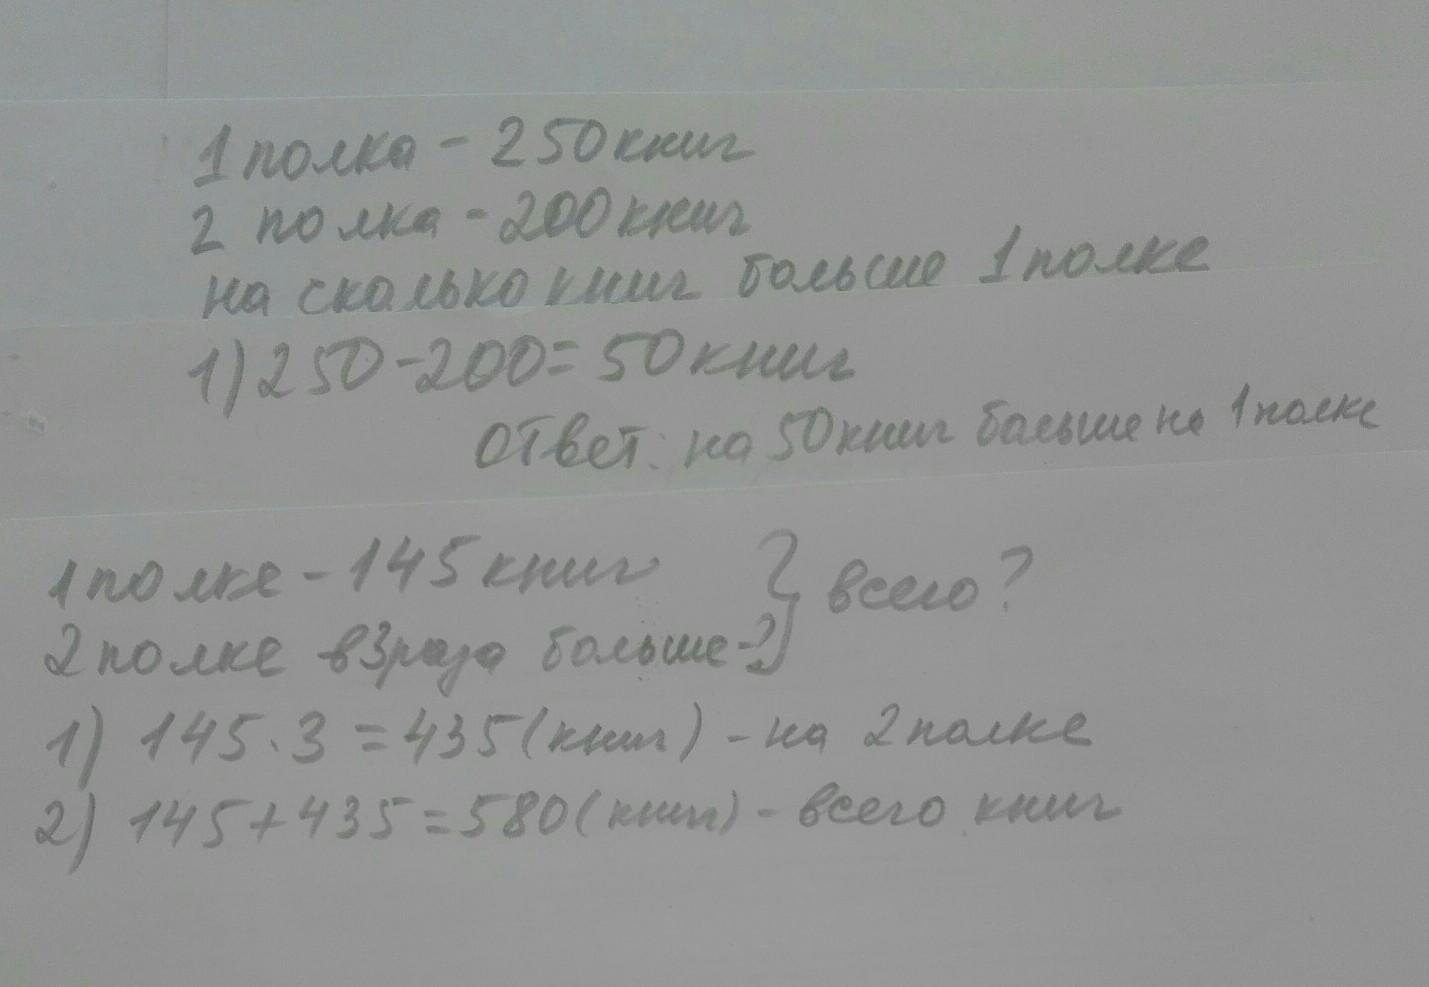 1 полка - 250 книг
2 полка - 200 книг
на сколько книг больше 1 полке
1) 250 - 200 = 50 книг
Ответ: на 50 книг больше на 1 полке
1 полке - 145 книг } всего?
2 полке в 3 раза больше - ?
1) 145 · 3 = 435 (книг) - на 2 полке
2) 145 + 435 = 580 (книг) - всего книг